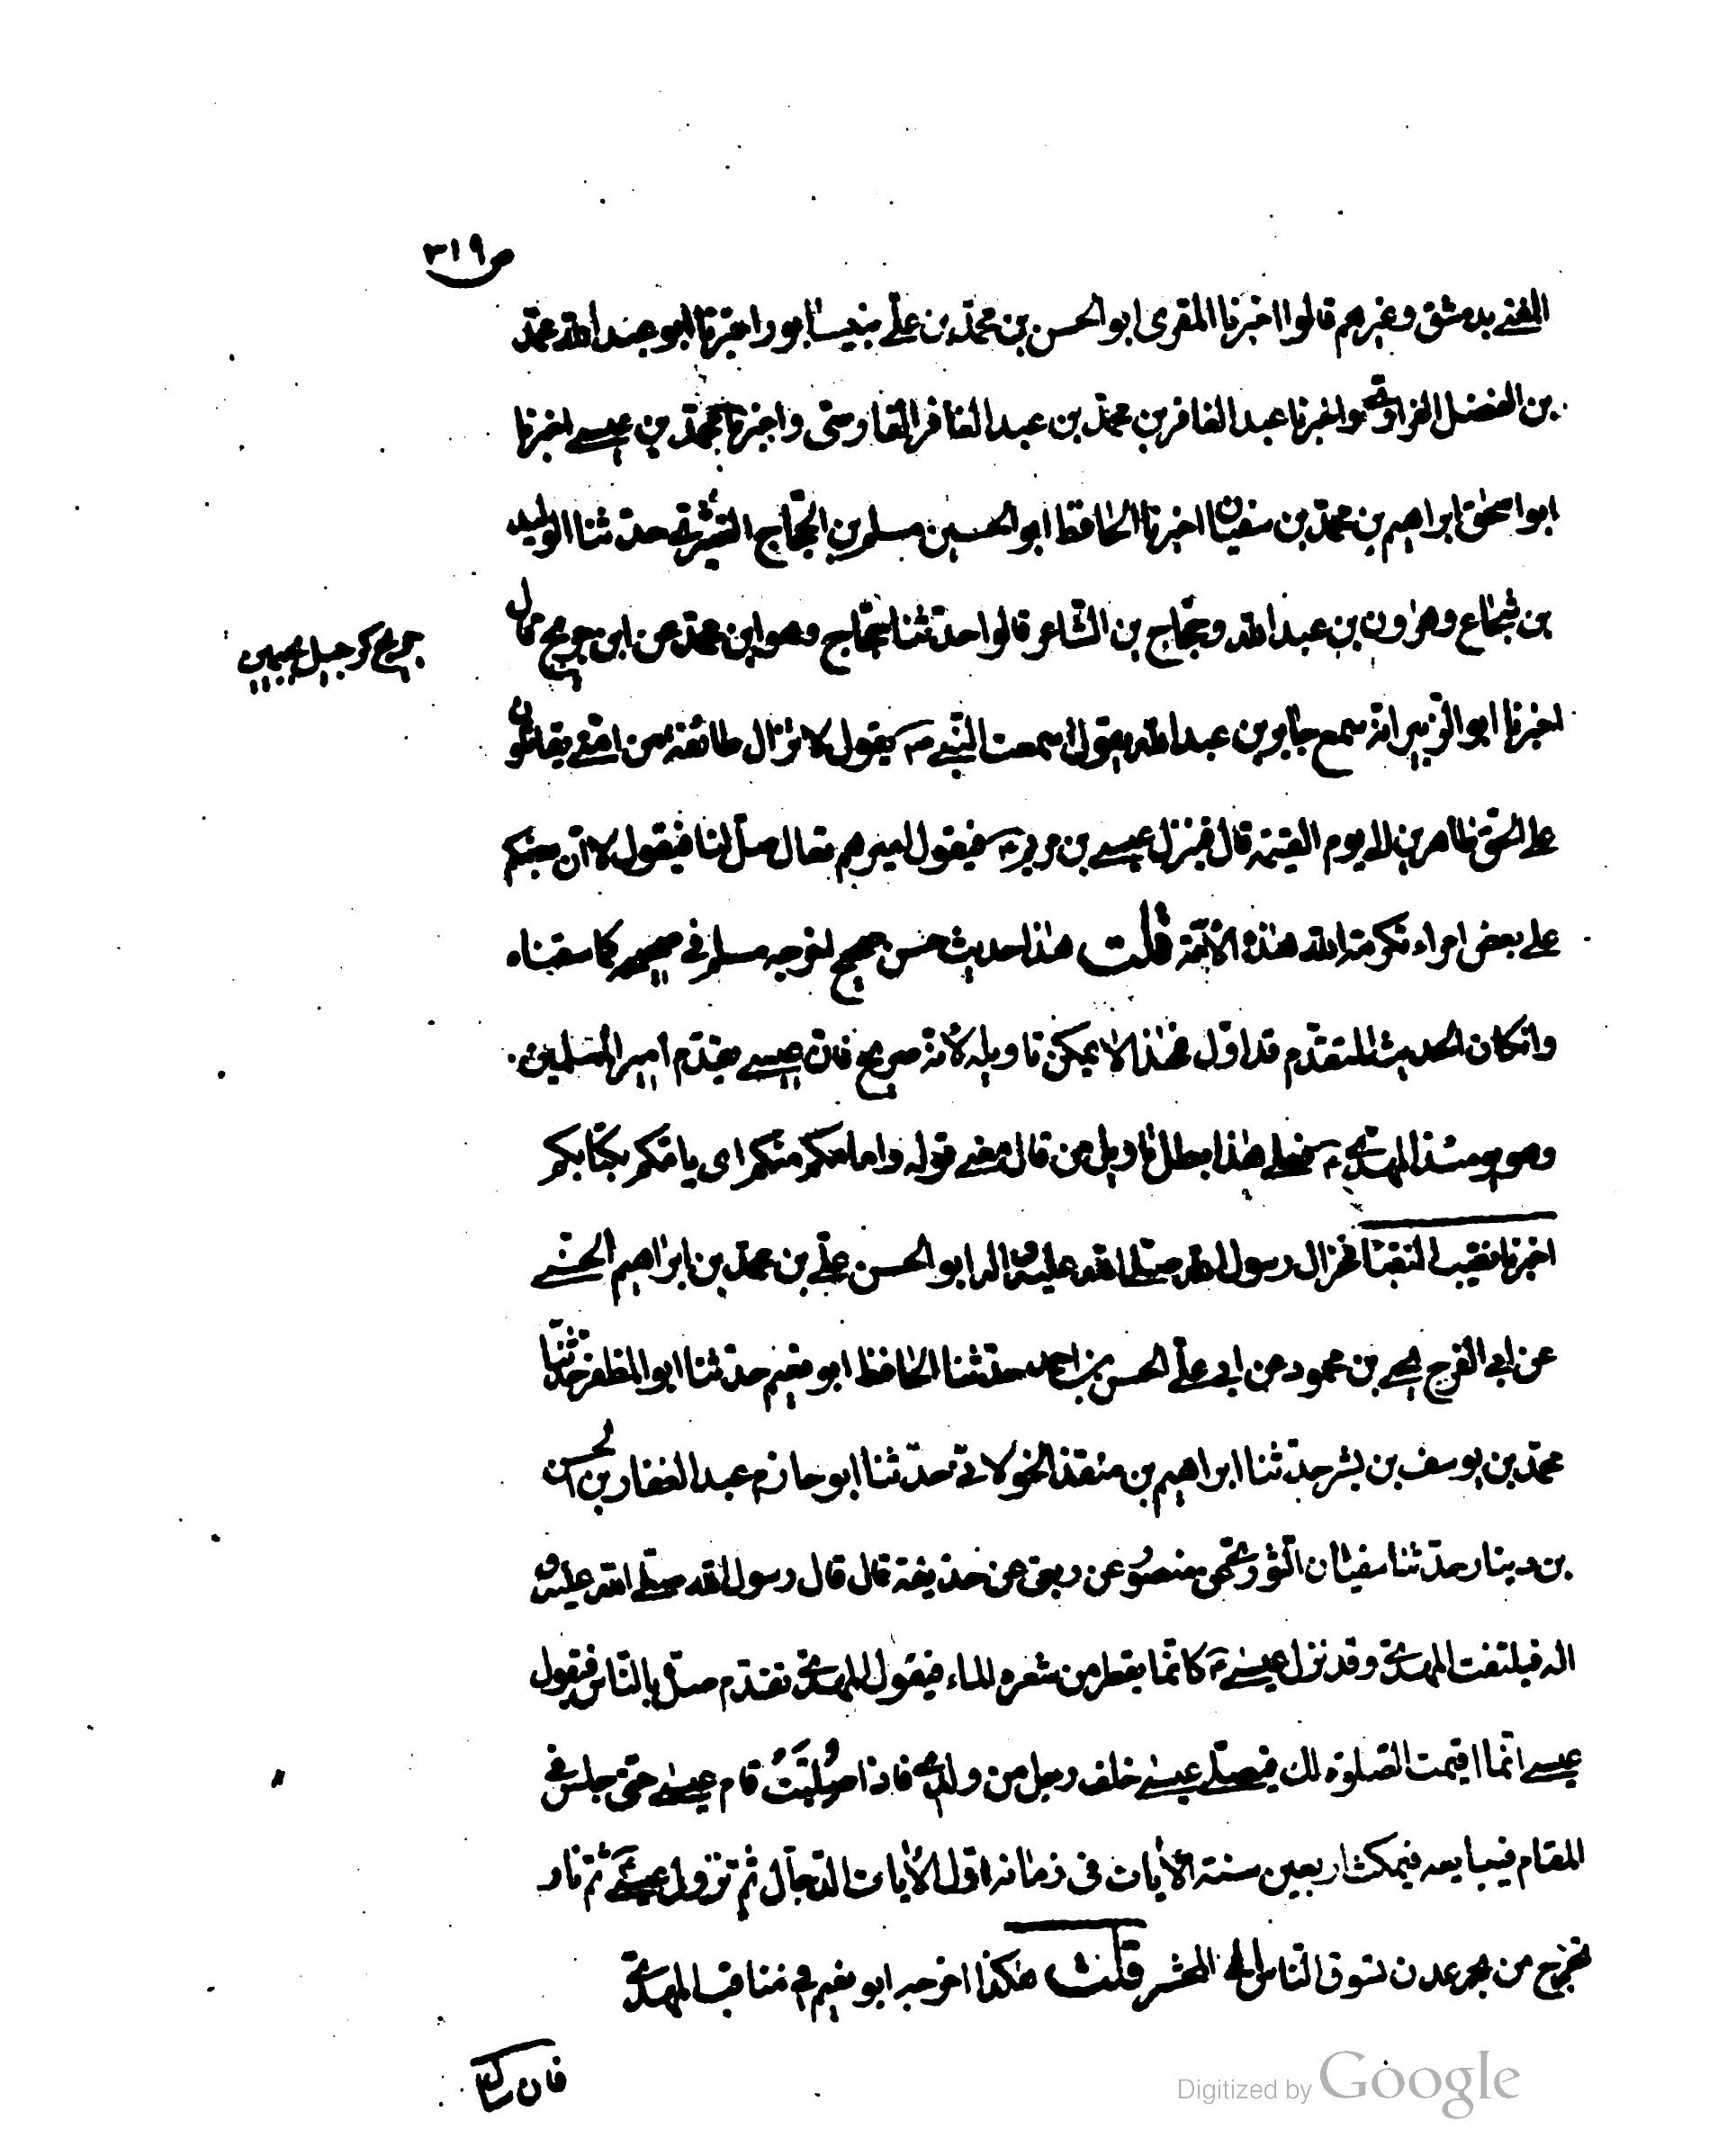 ص ٣١٩
المفتى بدمشق وغيرهم قالوا اخبرنا المقرى ابو الحسن بن محمّد بن علىّ بنيسابور اخبرنا ابو عبد الله محمّد
بن الفضل الفراوىّ واخبرنا عبد الغافر بن محمّد بن عبد الغافر الفارسى واخبرنا محمّد بن عيسى اخبرنا
ابو اسحٰق ابراهيم بن محمّد بن سفيان اخبرنا الحافظ ابو الحسين مسلم بن الحجّاج القشيرىّ حدّثنا الوليد
بن شجاع وهرون بن عبد الله وحجّاج بن الشّاعر قالوا حدّثنا حجّاج وهو ابن محمّد عن ابن جريج قال
جريج كزجيل بجيمين
اخبرنا ابو الزّبير انّه سمع جابر بن عبد الله يقول سمعت النّبى ص يقول لا تزال طائفة من امّتى يقاتلون
على الحقّ ظاهرين الى يوم القيٰمة قال فينزل عيسى بن مريم ع فيقول اميرهم تعال صلّ لنا فيقول لا انّ بعضكم
على بعض امراء تكرمة الله هٰذه الامّة قلت هٰذا حديث حسن صحيح اخرجه مسلم فى صحيحه كما سقناه
وان كان الحديث المتقدّم قد اوّل فهٰذا لا يمكن تاويله لانّه صريح فانّ عيسى يقدّم امير المسلمين
وهو يومئذ المهدىّ ع فعلى هٰذا بطل تاويل من قال معنى قوله وامامكم منكم اى يامّكم بكتابكم
اخبرنا نقيب النقبا فخر ال رسول الله صلّى الله عليه و اله ابو الحسن علىّ بن محمّد بن ابراهيم الحسنى
عن ابى الفرج يحيى بن محمود عن ابى علىّ الحسن بن احمد حدّثنا الحافظ ابو نعيم حدّثنا ابو المظفر حدّثنا
محمّد بن يوسف بن بشر حدّثنا ابراهيم بن منقذ الخولانىّ حدّثنا ابو حازم عبد الغفار بن الحسن
بن دينار حدّثنا سفيان الثّورىّ عن منصور عن ربعى عن حذيفة قال قال رسول الله صلّى الله عليه و
اله فيلتفت المهدىّ وقد نزل عيسى ع كانّما يقطر من شعره الماء فيقول المهدىّ تقدّم صلّ بالنّاس فيقول
عيسى انّما اقيمت الصّلوة لك فيصلّى عيسى خلف رجل من ولدى فاذا صُلّيَتْ قام عيسى حتّى جلس فى
المقام فيبايعه فيمكث اربعين سنة الايات فى زمانه اوّل الايات الدّجّال ثمّ نزول عيسى ع ثمّ نار
تخرج من بحر عدن تسوق النّاس الى المحشر قلت هٰكذا اخرجه ابو نعيم فى مناقب المهدىّ
فان
Digitized by Google